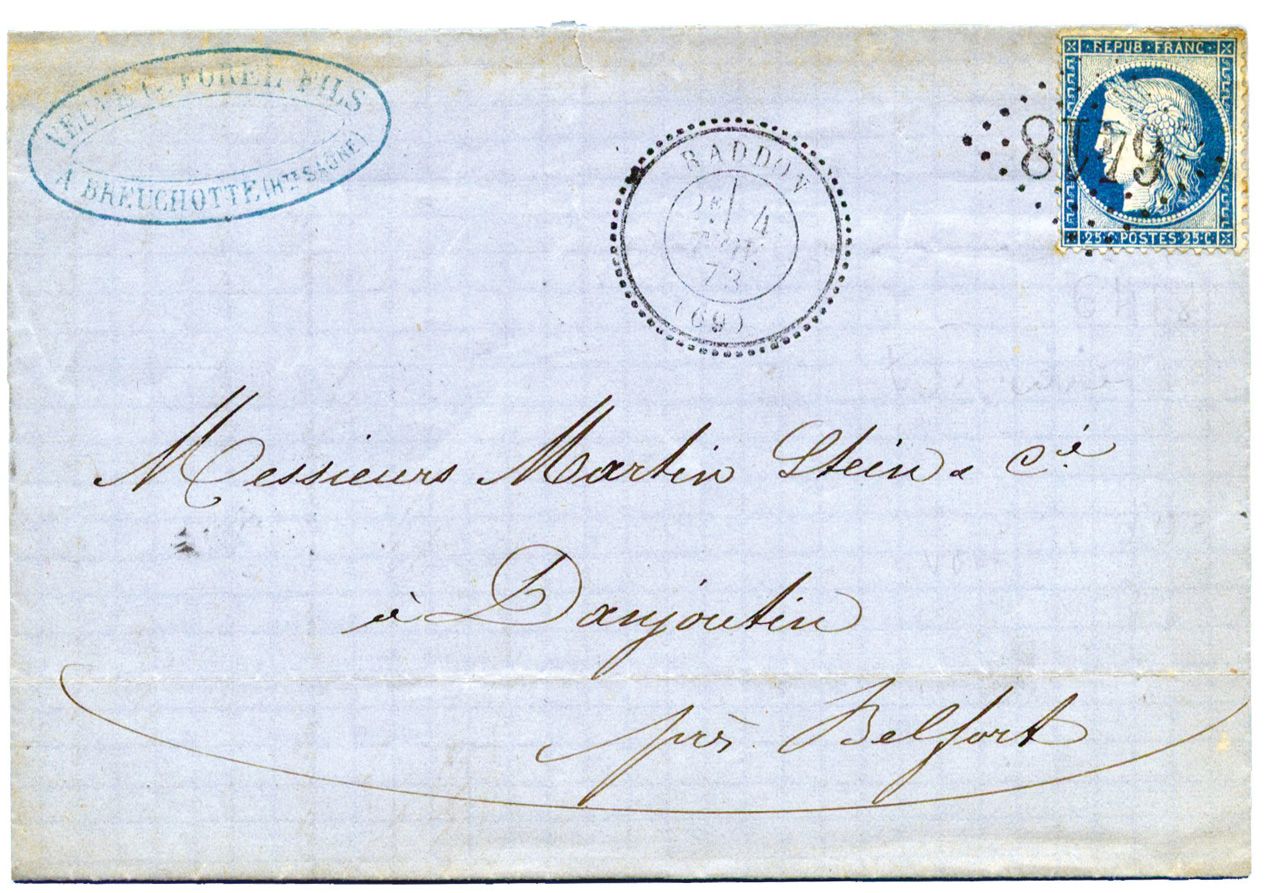 VEUVE G. FOREL FILS
A BREUCHOTTE (HTE SAÔNE)
RADDON
1E
4
73
(69)
REPUB·FRANC·
25·C·POSTES·25·C·
Messieurs Martin Stein & Cie
à Danjoutin
près Belfort